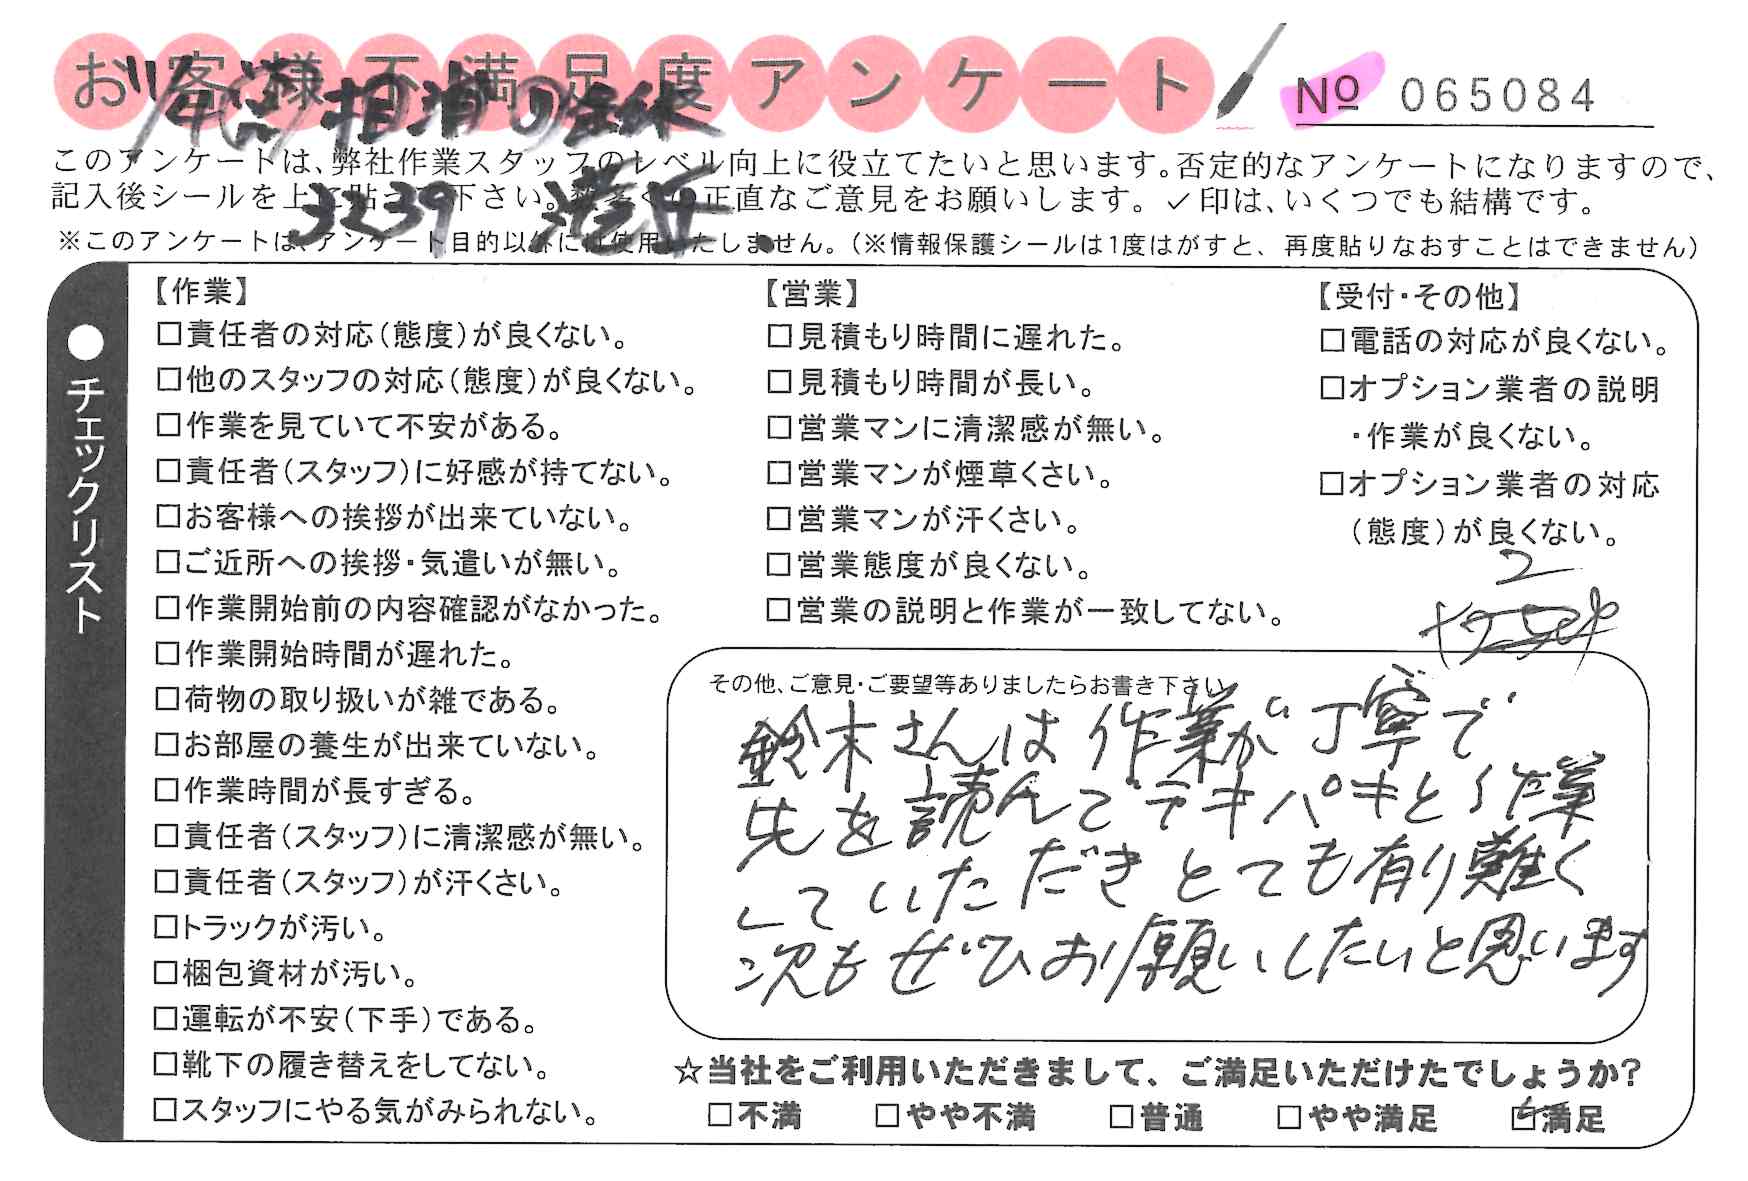 お客様不満足度アンケート
№ 065084
3239 港丘
このアンケートは、弊社作業スタッフのレベル向上に役立てたいと思います。否定的なアンケートになりますので、
記入後シールを上に貼って下さい。数多くの正直なご意見をお願いします。✓印は、いくつでも結構です。
※このアンケートは、アンケート目的以外には使用いたしません。(※情報保護シールは1度はがすと、再度貼りなおすことはできません)
●チェックリスト
【作業】
□責任者の対応(態度)が良くない。
□他のスタッフの対応(態度)が良くない。
□作業を見ていて不安がある。
□責任者(スタッフ)に好感が持てない。
□お客様への挨拶が出来ていない。
□ご近所への挨拶・気遣いが無い。
□作業開始前の内容確認がなかった。
□作業開始時間が遅れた。
□荷物の取り扱いが雑である。
□お部屋の養生が出来ていない。
□作業時間が長すぎる。
□責任者(スタッフ)に清潔感が無い。
□責任者(スタッフ)が汗くさい。
□トラックが汚い。
□梱包資材が汚い。
□運転が不安(下手)である。
□靴下の履き替えをしてない。
□スタッフにやる気がみられない。
【営業】
□見積もり時間に遅れた。
□見積もり時間が長い。
□営業マンに清潔感が無い。
□営業マンが煙草くさい。
□営業マンが汗くさい。
□営業態度が良くない。
□営業の説明と作業が一致してない。
【受付・その他】
□電話の対応が良くない。
□オプション業者の説明
・作業が良くない。
□オプション業者の対応
(態度)が良くない。
2
その他、ご意見・ご要望等ありましたらお書き下さい
鈴木さんは作業が丁寧で
先を読んでテキパキと作業
していただきとても有り難く
次もぜひお願いしたいと思います
☆当社をご利用いただきまして、ご満足いただけたでしょうか?
□不満 □やや不満 □普通 □やや満足 ☑満足